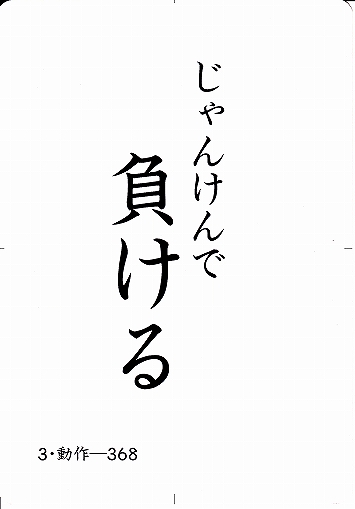 じゃんけんで
負ける
3・動作―368